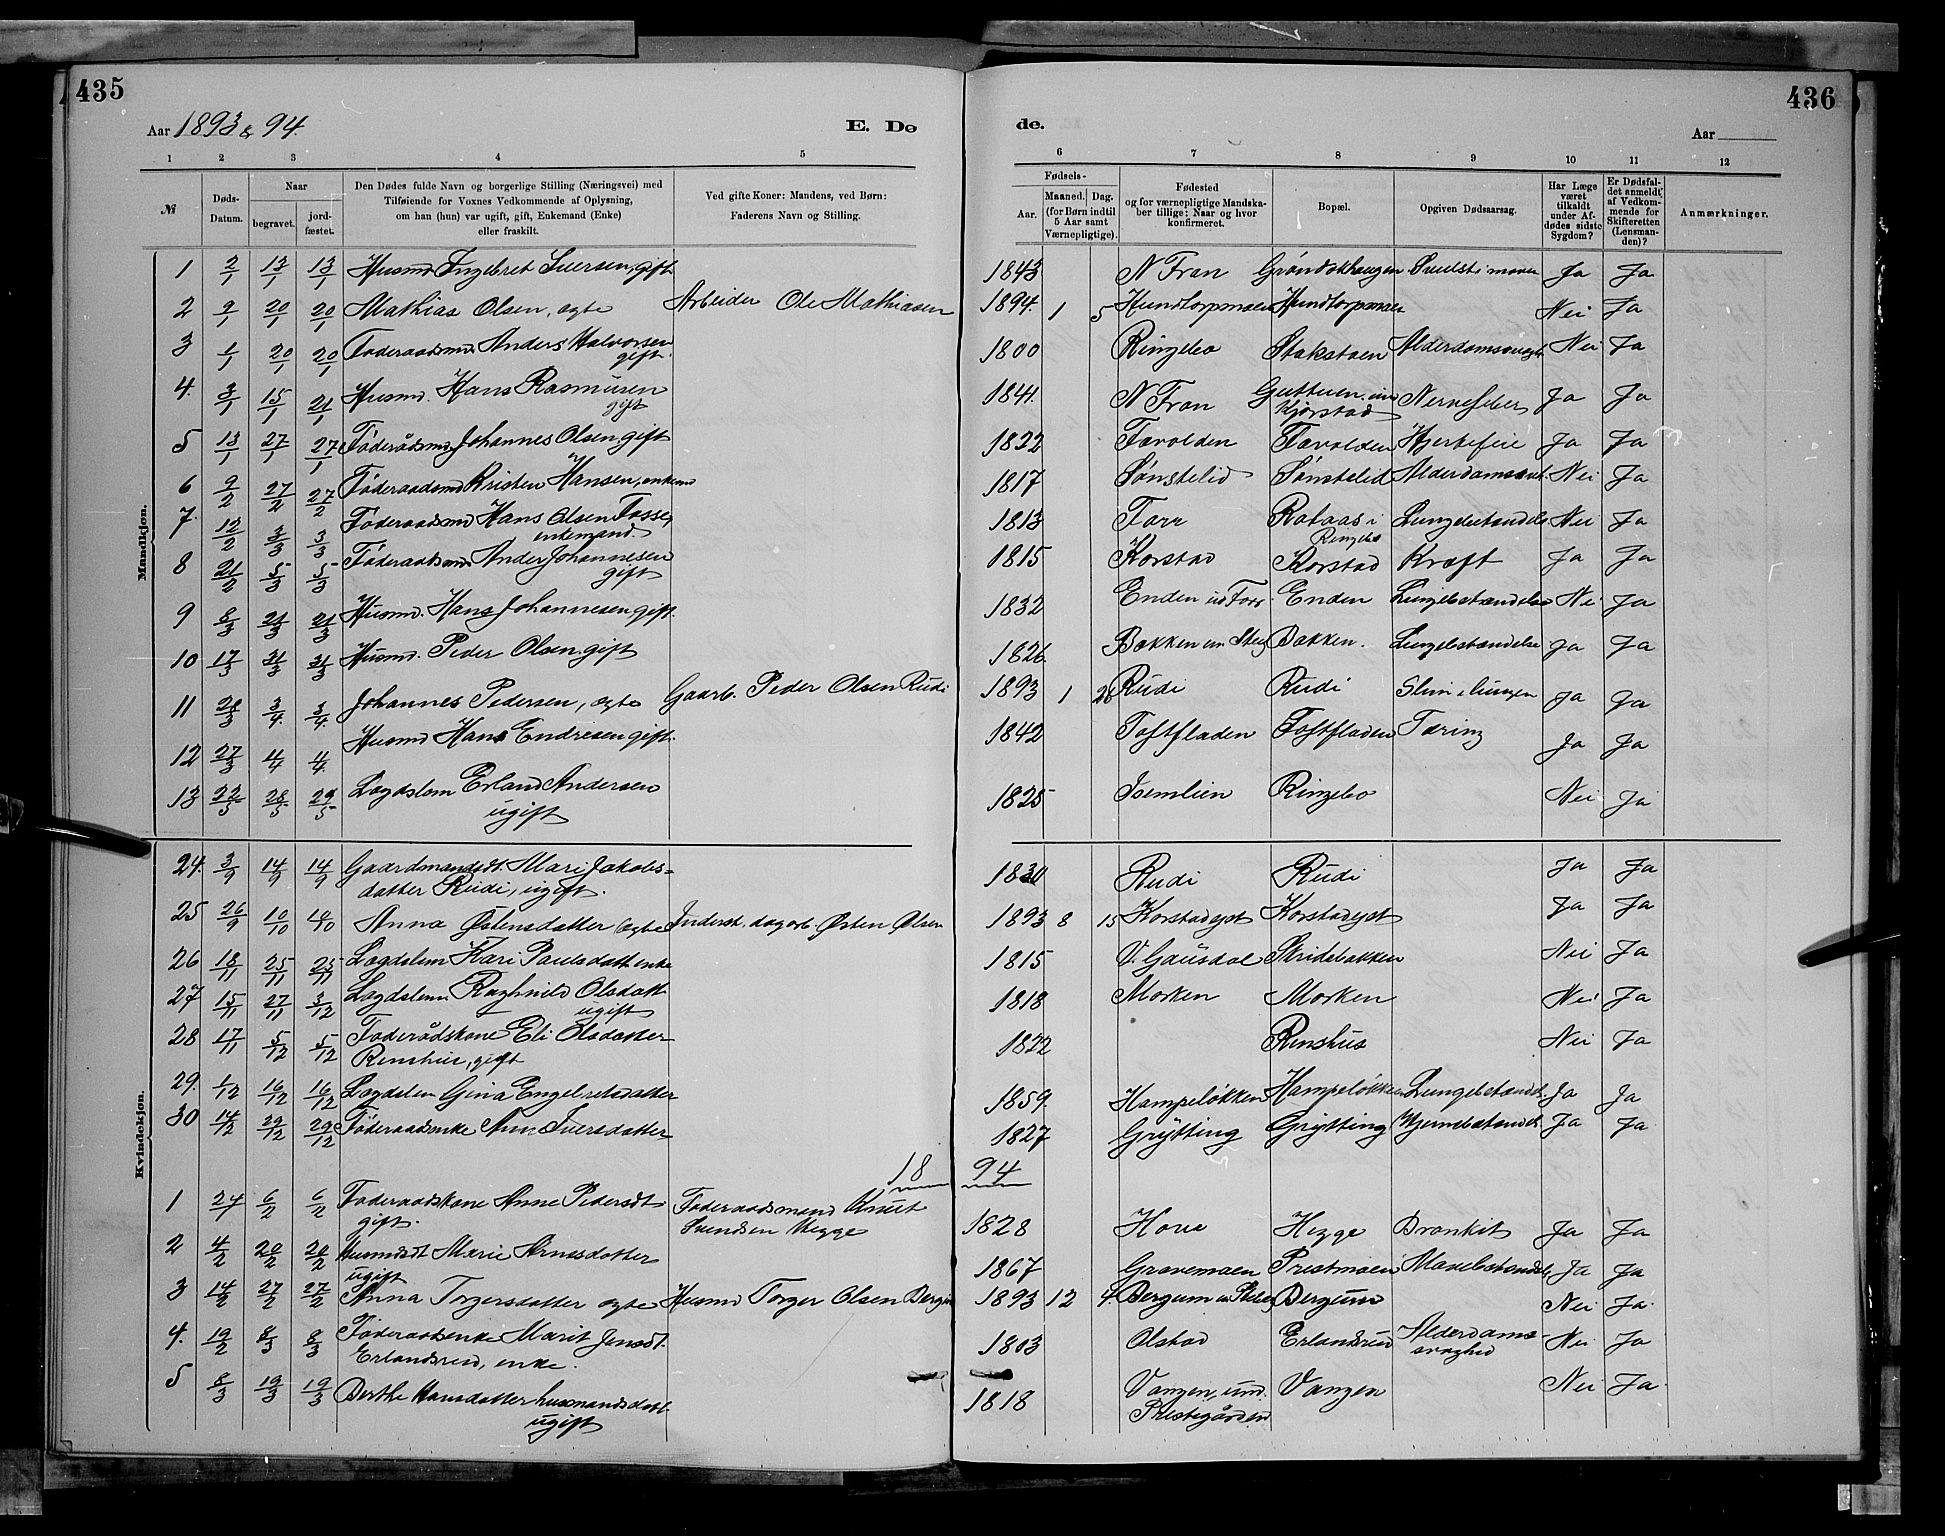 435
436
Aar 1893 & 94.
E. Dø
de.
Aar
1 2 3 4 5 6 7 8 9 10 11 12
№
Døds-Datum.
Naar
begravet.
jordfæstet.
Den Dødes fulde Navn og borgerlige Stilling (Næringsvei) med
Tilføiende for Voxnes Vedkommende af Oplysning,
om han (hun) var ugift, gift, Enkemand (Enke)
eller fraskilt.
Ved gifte Koner: Mandens, ved Børn:
Faderens Navn og Stilling.
Fødsels-
Aar.
Maaned. Dag.
(for Børn indtil
5 Aar samt
Værnepligtige).
Fødested
og for værnepligtige Mandska-
ber tillige: Naar og hvor
konfirmeret.
Bopæl.
Opgiven Dødsaarsag.
Har Læge
været
tilkaldt
under Af-
dødes sidste
Sygdom?
Er Dødsfal-
det anmeldt
af Vedkom-
mende for
Skifteretten
(Lensman-
den)?
Anmærkninger.
Mandkjøn.
1 2/1 13/1 13/1 Husmd Ingebret Iversen, gift 1843 N Fron Grøndokhaugen Ja Ja
2 9/1 20/1 20/1 Mathias Olsen, ægte Arbeider Ole Mathiasen 1894. 1 5 Hundtorpmoen Hundtorpmoen Nei Ja
3 1/1 20/1 20/1 Føderaadsmd Anders Halvorsen gift. 1800 Ringebo Stakstoen Alderdomssvagh. Nei Ja
4. 3/1 15/1 21/1 Husmd. Hans Rasmusen gift 1841. N Fron Kjørstad Nervefeber Ja Ja
5 13/1 27/1 27/1 Føderådsmd Johannes Olsen gift 1822 Tævolden Tævolden Hjertefeil Ja Ja
6 9/2 27/2 27/2 Føderaadsmd Kristen Hansen, enkemd 1817 Sønstelid Sønstelid Alderdomssvt. Nei Ja
7. 12/2 3/3 3/3 Føderaadsmd Hans Olsen Fosse, enkemand. 1813 Forr Rataas i Ringebo Lungebetændels. Nei Ja
8 21/2 5/3 5/3 Føderaadsmd Ander Johannesen gift 1815 Korstad Korstad Kræft Ja Ja
9 8/3 21/3 21/3 Husmd. Hans Johannesen gift. 1832 Enden ud Forr. Enden Lungebetændelse Nei Ja
10 17/3 31/3 31/3 Husmd. Peder Olsen gift 1826. Bakken un Steig Bakken. Lungebetændelse Ja Ja
11 28/3 3/4. 3/4. Johannes Pedersen, ægte Gaarb. Peder Olsen Rudi 1893 1 26 Rudi Rudi Slim i lungen Ja Ja
12 27/3 4/4 4/4. Husmd Hans Endresen gift. 1842 Toftfladen Toftfladen Tæring Ja Ja
13 22/5 28/5 29/5 Lægdslem Erland Andersen ugift 1825 Isemlien Ringebo Nei Ja
Kvindekjøn.
24. 3/9 14/9 14/9 Gaardmandsdt. Mari Jakobs=
datter Rudi, ugift. 1830 Rudi Rudi Ja Ja
25 26/9 10/10 14/10 Anna Østensdatter ægte Inderst. dagarb. Østen Olsen 1893 8 15 Korstadejet Korstadejet Ja Ja
26 18/11 25/11 25/11 Lægdslem Kari Paulsdatt enke 1815 V. Gausdal Skridebakken Nei Ja
27 15/11 27/11 3/12 Lægdslem. Ragnhild Olsdatt. ugift 1818 Morken Morken Nei Ja
28 17/11 5/12 5/12 Føderådskone Eli Olsdatter
Renshus, gift 1822 Renshus Nei Ja
29. 1/12 16/12 16/12 Lægdslem Gina Engebretsdatter 1859. Hampeløkken Hampeløkken Lungebetændels. Ja Ja
30 14/12 29/12 29/12 Føderaadsenke Ane Iversdatter 1827 Grytting Grytting Hjernebetændels. Ja Ja
1894
1 24/1 6/2 6/2 Føderaadskone Anne Pedersdt
gift. Føderaadsmand Knut
Svendsen Hegge 1828 Hove Hegge Bronkit Ja Ja
2 4/2 20/2 20/2 Husmdsdt Marie Arnesdatter
ugift 1867 Gravemoen Prestmoen Mavebetændels. Ja Ja
3 14/2 27/2 27/2 Anna Torgersdatter ægte Husmd Torger Olsen Bergum 1893 12 4. Bergum Bergum Nei Ja.
4. 19/2 8/3 8/3 Føderaadsenke Marit Jensdt.
Erlandsrud, enke. 1803 Olstad Erlandsrud Alderdoms-
svaghed Nei Ja
5 8/3 19/3 19/3 Berthe Hansdatter husmandsdatt.
ugift 1818 Vangen, und.
Prestegården Vangen Nei Ja